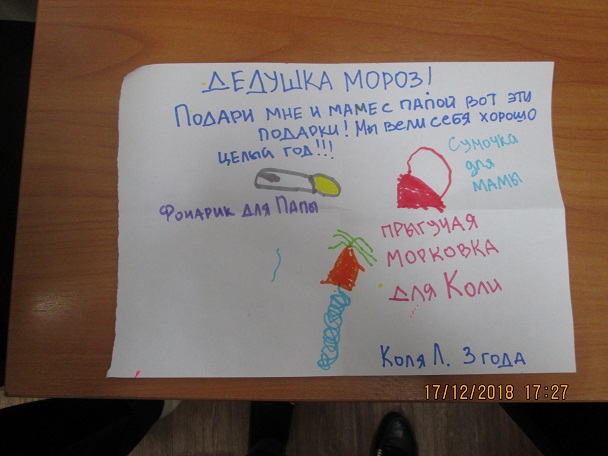 ДЕДУШКА МОРОЗ!
ПОДАРИ МНЕ И МАМЕ С ПАПОЙ ВОТ ЭТИ
ПОДАРКИ! МЫ ВЕЛИ СЕБЯ ХОРОШО
ЦЕЛЫЙ ГОД!!!
СУМОЧКА
ДЛЯ
МАМЫ
ФОНАРИК ДЛЯ ПАПЫ
ПРЫГУЧАЯ
МОРКОВКА
ДЛЯ КОЛИ
КОЛЯ Л. 3 ГОДА
17/12/2018 17:27